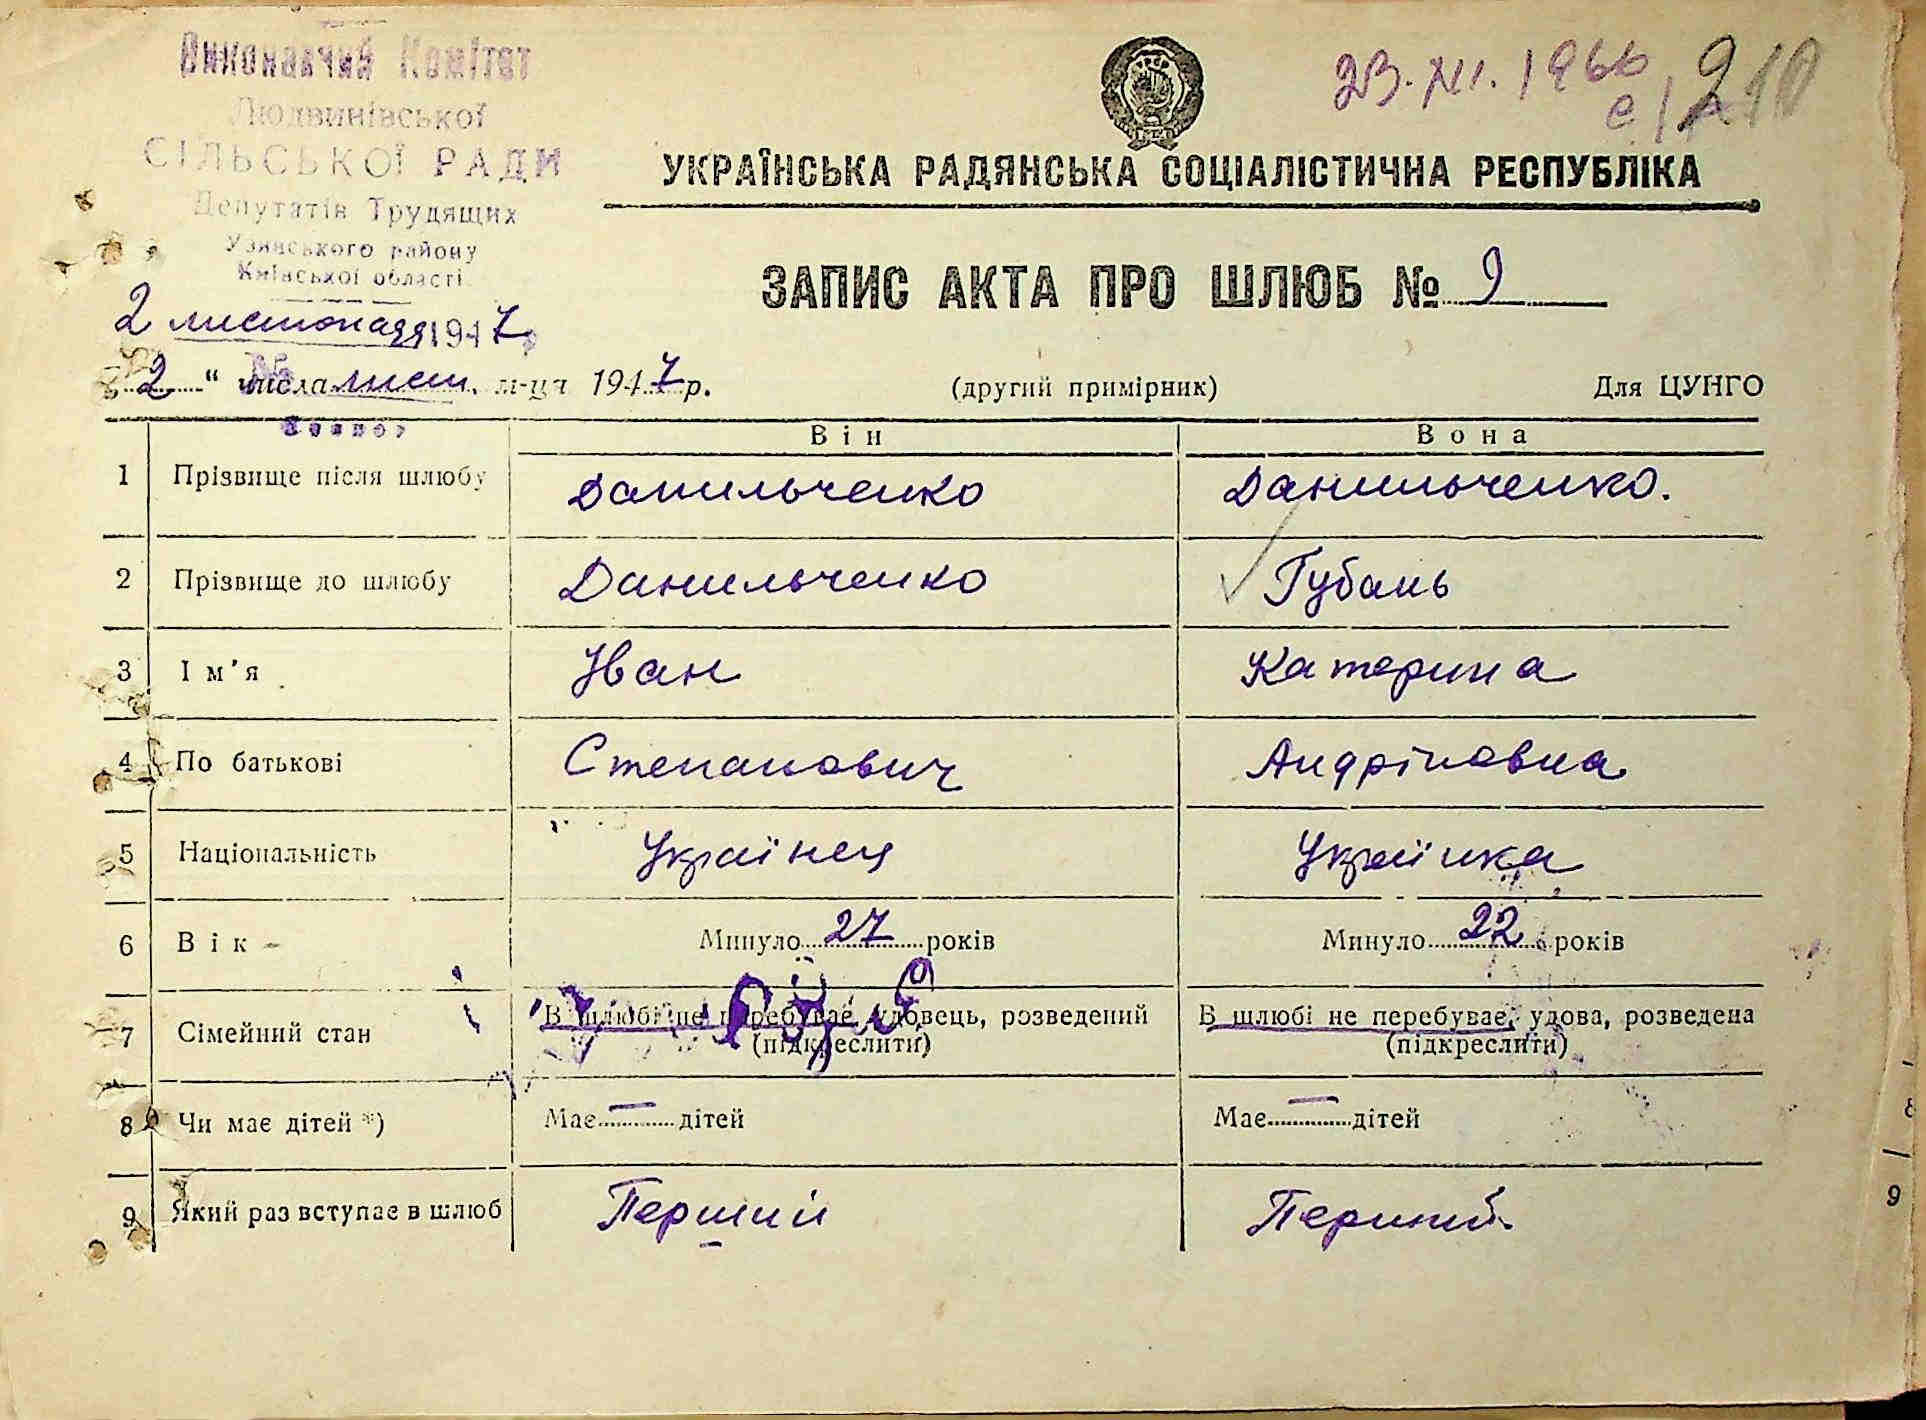 Виконавчий Комітет
Людвинівської
СІЛЬСЬКОЇ РАДИ
Депутатів Трудящих
Узинського району
Київської області
2 листопада 1947
23.XI.1966
210
УРСР
УКРАЇНСЬКА РАДЯНСЬКА СОЦІАЛІСТИЧНА РЕСПУБЛІКА
ЗАПИС АКТА ПРО ШЛЮБ № 9
2 " числа лист. м-ця 1947 р. (другий примірник) Для ЦУНГО
Він Вона
1 Прізвище після шлюбу Данильченко Данильченко.
2 Прізвище до шлюбу Данильченко Губань
3 Ім'я Іван Катерина
4 По батькові Степанович Андріповна
5 Національність Українец Українка
6 Вік Минуло 27 років Минуло 22 років
7 Сімейний стан В шлюбі не перебуває, удовець, розведений В шлюбі не перебуває, удова, розведена
(підкреслити) (підкреслити)
8 Чи має дітей *) Має — дітей Має — дітей
9 Який раз вступає в шлюб Перший Перший.
8
9